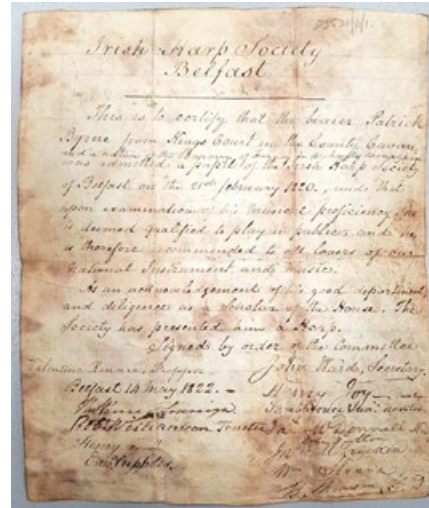 D3531/2/1
Irish Harp Society
Belfast
This is to certify that the bearer Patrick
Byrne from Kings Court in the County Cavan,
and a native
was admitted a pupil of the Irish Harp Society
of Belfast on the 21st february 1820., and that
upon examination of his musical proficiency he
is deemed qualified to play in public, and he
is therefore recommended to all lovers of our
national Instrument and Music.
As an acknowledgement of his good deportment,
and diligence as a Scholar of the House. The
Society has presented him a Harp.
Signed by order of the Committee
John Ward, Secretary.
Valentine Rennie,
Belfast 14 May 1822. –
Henry Joy
Robt Williamson
McDonnell
Henry
McCracken
Edw. Cupples
Wm